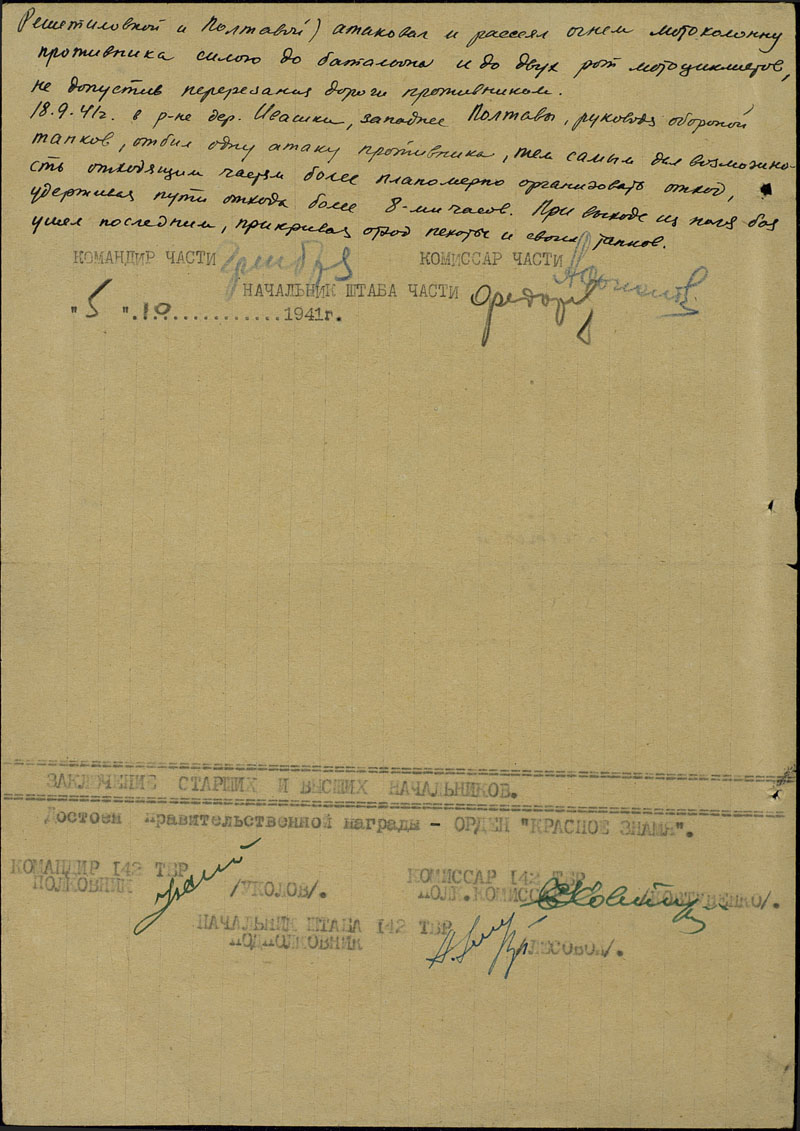 Решетиловкой и Полтавой) атаковал и рассеял огнем мотоколонну
противника силою до батальона и до двух рот мотоциклистов,
не допустив перерезания дороги противником.
18.9.41г. в р-не дер. Ивашки, западнее Полтавы, руководя обороной
танков, отбил одну атаку противника, тем самым дав возможно-
сть отходящим частям более планомерно организовать отход,
удерживая пути отхода более 8-ми часов. При выходе из поля боя
ушел последним, прикрывая отход пехоты и своих танков.
КОМАНДИР ЧАСТИ КОМИССАР ЧАСТИ
НАЧАЛЬНИК ШТАБА ЧАСТИ
"5".10............1941г.
ЗАКЛЮЧЕНИЕ СТАРШИХ И ВЫСШИХ НАЧАЛЬНИКОВ.
Достоен правительственной награды - ОРДЕН "КРАСНОЕ ЗНАМЯ".
КОМАНДИР 142 ТБР КОМИССАР 142 ТБР
ПОЛКОВНИК /УКОЛОВ/. ПОЛК.КОМИССАР
НАЧАЛЬНИК ШТАБА 142 ТБР
ПОДПОЛКОВНИК